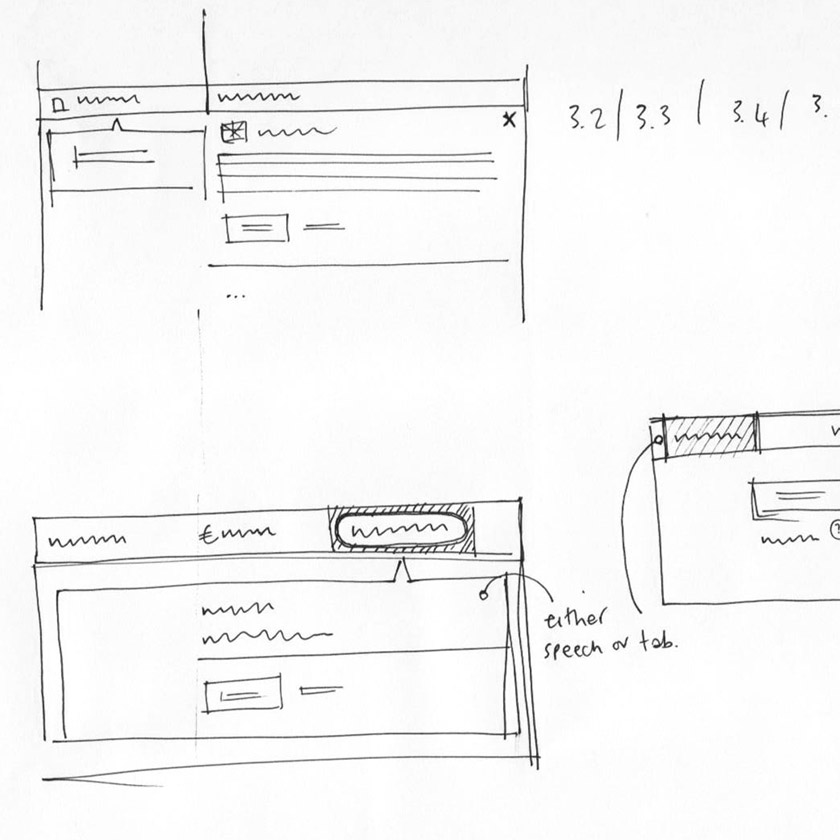 3.2 / 3.3 / 3.4 / 3.
x
€
?
either
speech or tab.
...